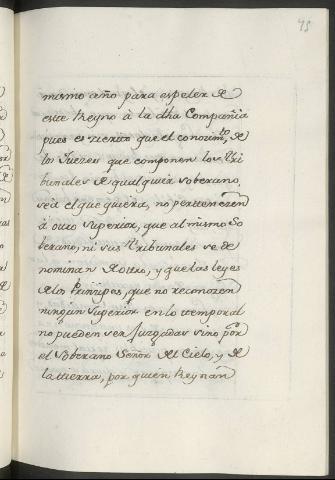 45
mismo año para espeler de
este Reyno à la dha Compañia
pues es zierto que el conozim.to de
los Juezes que componen los Tri
bunales de qualquier soberano,
seà el que quiera, no pertenezen
à otro superior, que al mismo So
berano, ni sus Tribunales se de
nominan de otro, y que las leyes
de los Prinzipes, que no reconozen
ningun superior en lo temporal
no pueden ser Juzgadas sino por
el soberano Señor del Cielo, y de
la tierra, por quien Reynan